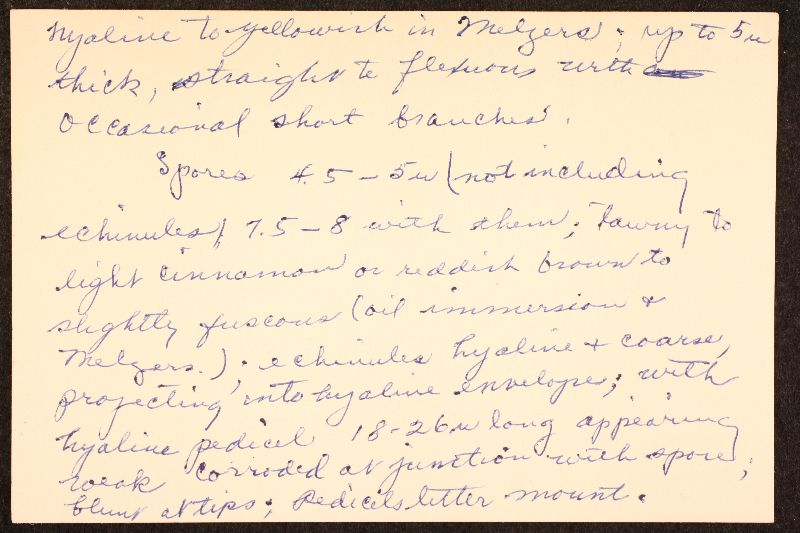 hyaline to yellowish in Melzers; up to 5u
thick, straight to flexuous with
occasional short branches.
Spores 4.5 – 5u (not including
echinules) 7.5 – 8 with them; tawny to
light cinnamon or reddish brown to
slightly fuscous (oil immersion +
Melzers.); echinules hyaline + coarse,
projecting into hyaline envelope; with
hyaline pedicel 18-26u long appearing
weak corroded at junction with spore;
blunt at tips; Pedicels litter mount.